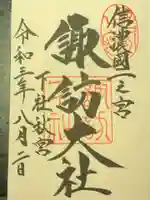 信濃國一之宮
諏訪大社
下社秋宮
令和三年八月二日